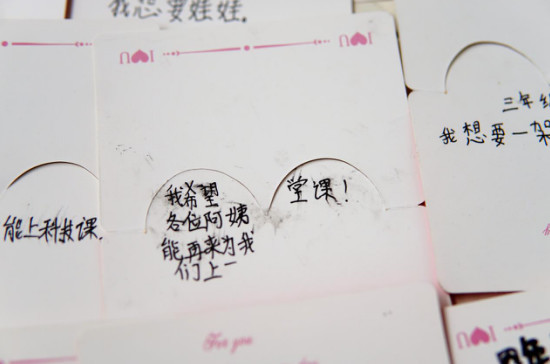 我想要娃娃.
我希望
各位阿姨
能再来为我
们上一
堂课！
能上科技课.
三年
我想要一架
For you